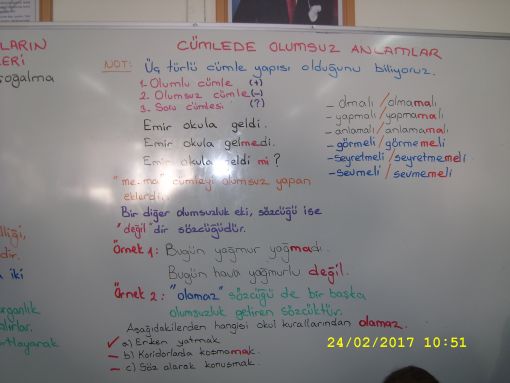 CÜMLEDE OLUMSUZ ANLAMLAR
NOT: Üç türlü cümle yapısı olduğunu biliyoruz.
1- Olumlu cümle (+)
2. Olumsuz cümle (-)
3- Soru cümlesi (?)
Emir okula geldi.
Emir okula gelmedi.
Emir okula geldi mi?
"me-ma" cümleyi olumsuz yapan
eklerdir.
Bir diğer olumsuzluk eki, sözcüğü ise
"değil" dir sözcüğüdür.
Örnek 1: Bugün yağmur yağmadı.
Bugün hava yağmurlu değil.
Örnek 2: "olamaz" sözcüğü de bir başka
olumsuzluk getiren sözcüktür.
Aşağıdakilerden hangisi okul kurallarından olamaz.
a) Erken yatmak
b) Koridorlarda koşmamak.
c) Söz alarak konuşmak.
- olmalı / olmamalı
- yapmalı / yapmamalı
- anlamalı / anlamamalı
- görmeli / görmemeli
- seyretmeli / seyretmemeli
- sevmeli / sevmemeli
LARIN
LERİ
çoğalma
lliği,
dir.
iki
organlık
lırlar.
rtlayarak
24/02/2017 10:51